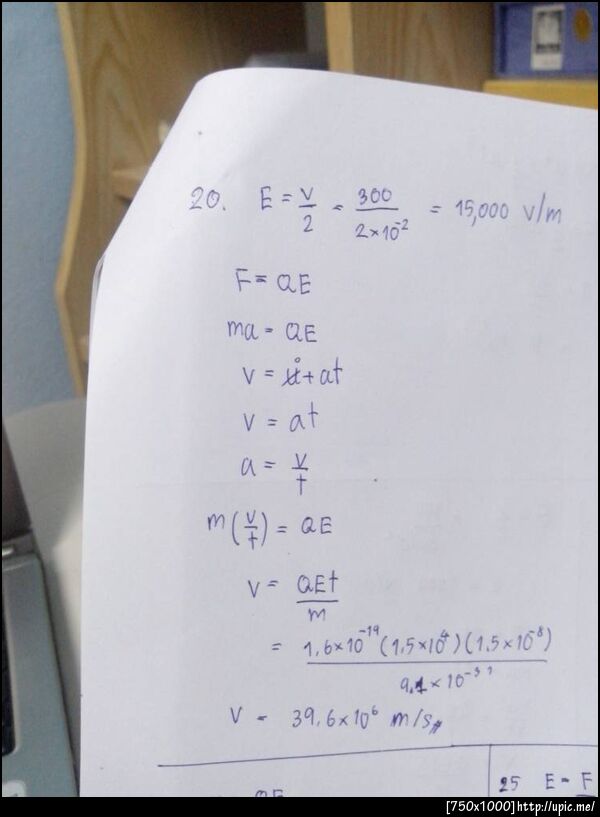 20. E = V/2 = 300/2×10⁻² = 15,000 V/m
F = QE
ma = QE
v = u⁰ + at
v = at
a = v/t
m(v/t) = QE
v = QEt/m
= 1.6×10⁻¹⁹(1.5×10⁴)(1.5×10⁻⁸)/9.1×10⁻³¹
V = 39.6×10⁶ m/s
25 E = F
QE
[750x1000]http://upic.me/